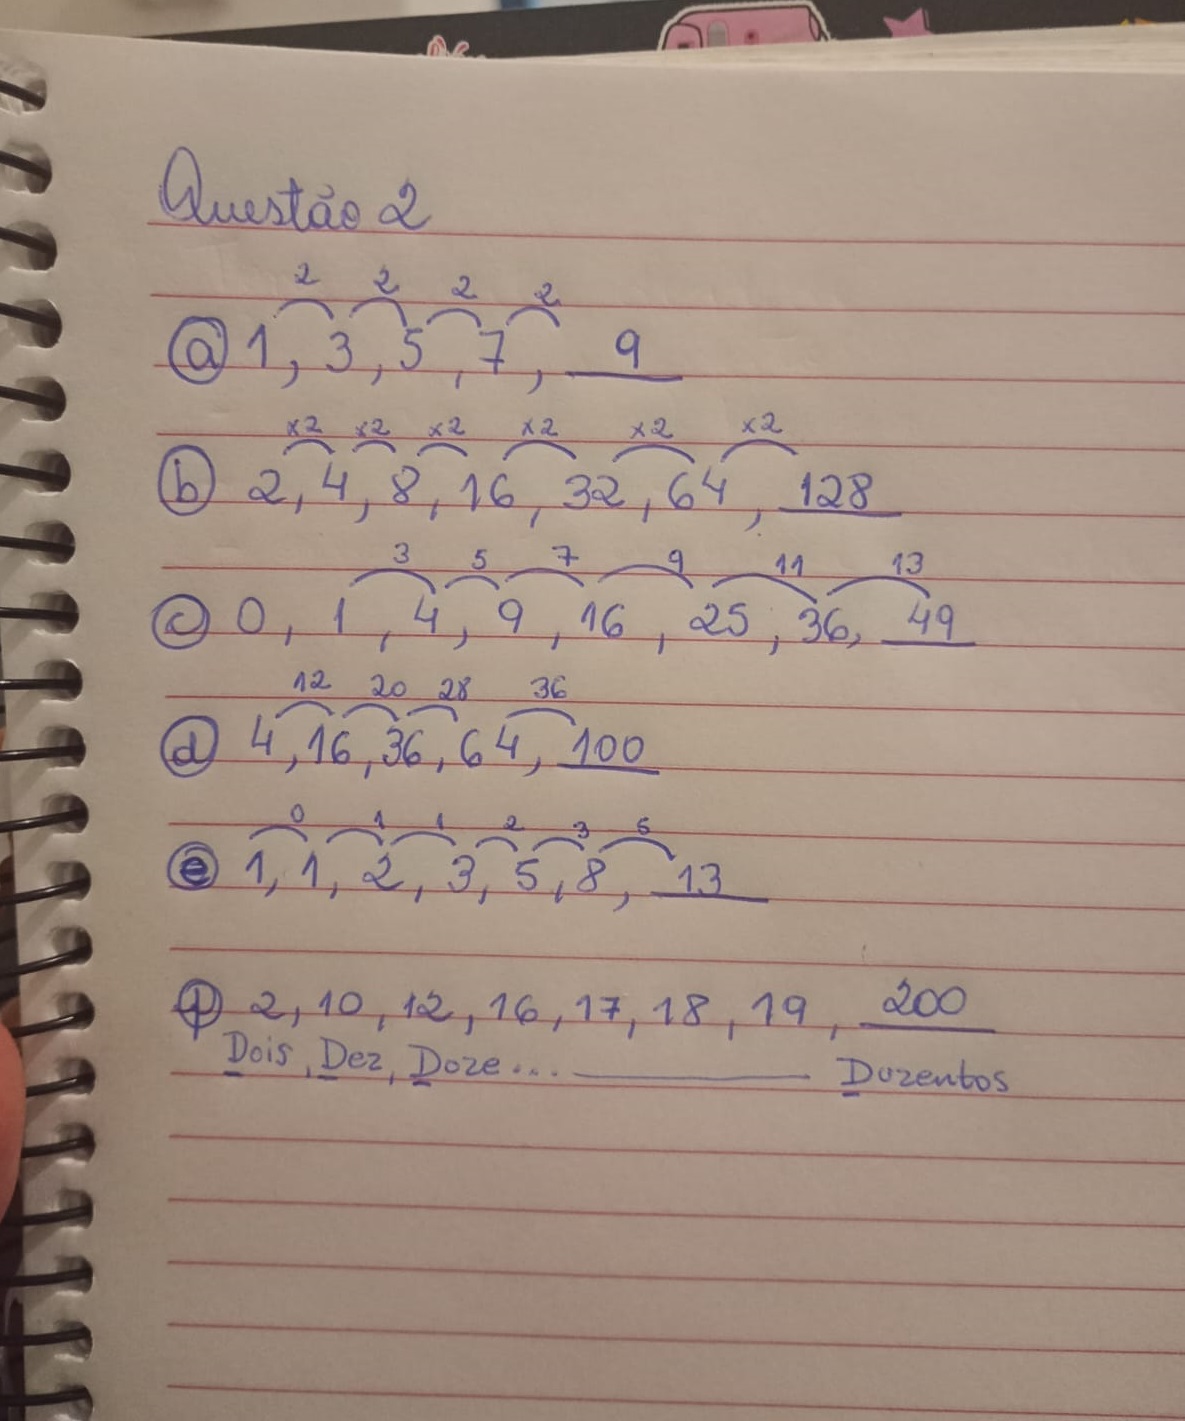 Questão 2
2 2 2 2
a 1, 3, 5, 7, 9
x2 x2 x2 x2 x2 x2
b 2, 4, 8, 16, 32, 64, 128
3 5 7 9 11 13
c 0, 1, 4, 9, 16, 25, 36, 49
12 20 28 36
d 4, 16, 36, 64, 100
0 1 1 2 3 5
e 1, 1, 2, 3, 5, 8, 13
f 2, 10, 12, 16, 17, 18, 19, 200
Dois, Dez, Doze... Duzentos